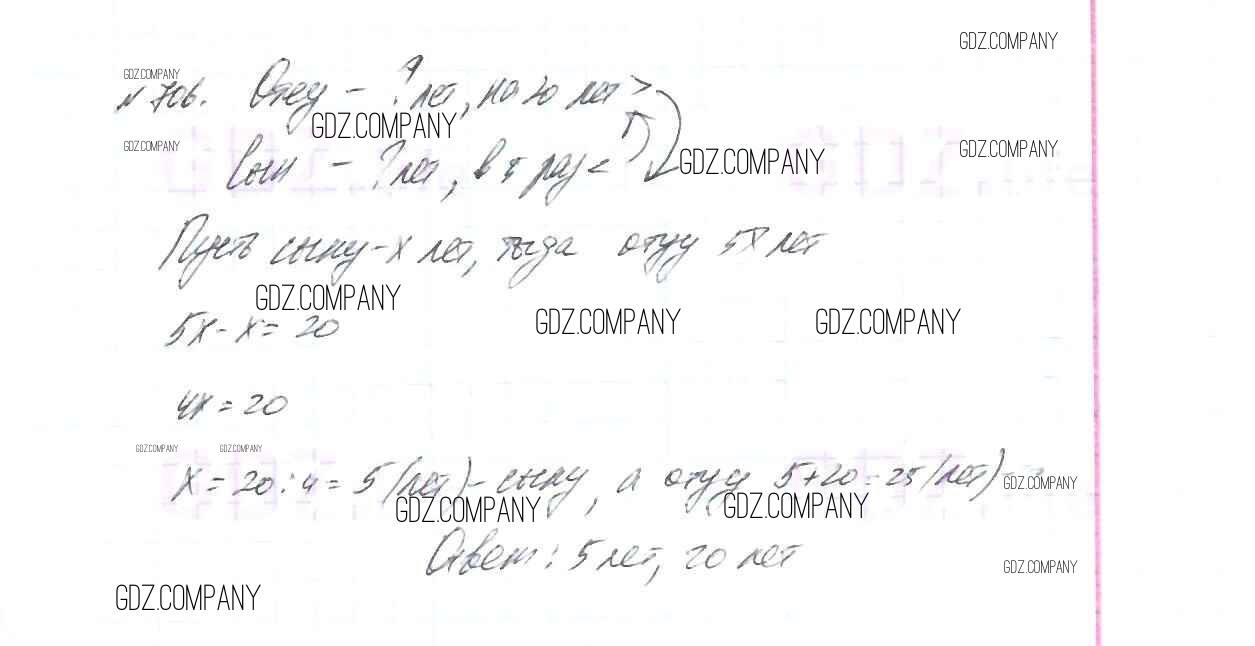 GDZ.COMPANY
GDZ.COMPANY
№ 706. Отец - ? лет, на 20 лет >
GDZ.COMPANY
GDZ.COMPANY
GDZ.COMPANY
Сын - ? лет, в 5 раз <
GDZ.COMPANY
Пусть сыну - х лет, тогда отцу 5х лет
GDZ.COMPANY
5х - х = 20
GDZ.COMPANY
GDZ.COMPANY
4х = 20
GDZ.COMPANY
GDZ.COMPANY
х = 20 : 4 = 5 (лет) - сыну, а отцу 5 + 20 = 25 (лет)
GDZ.COMPANY
GDZ.COMPANY
GDZ.COMPANY
Ответ: 5 лет, 20 лет
GDZ.COMPANY
GDZ.COMPANY